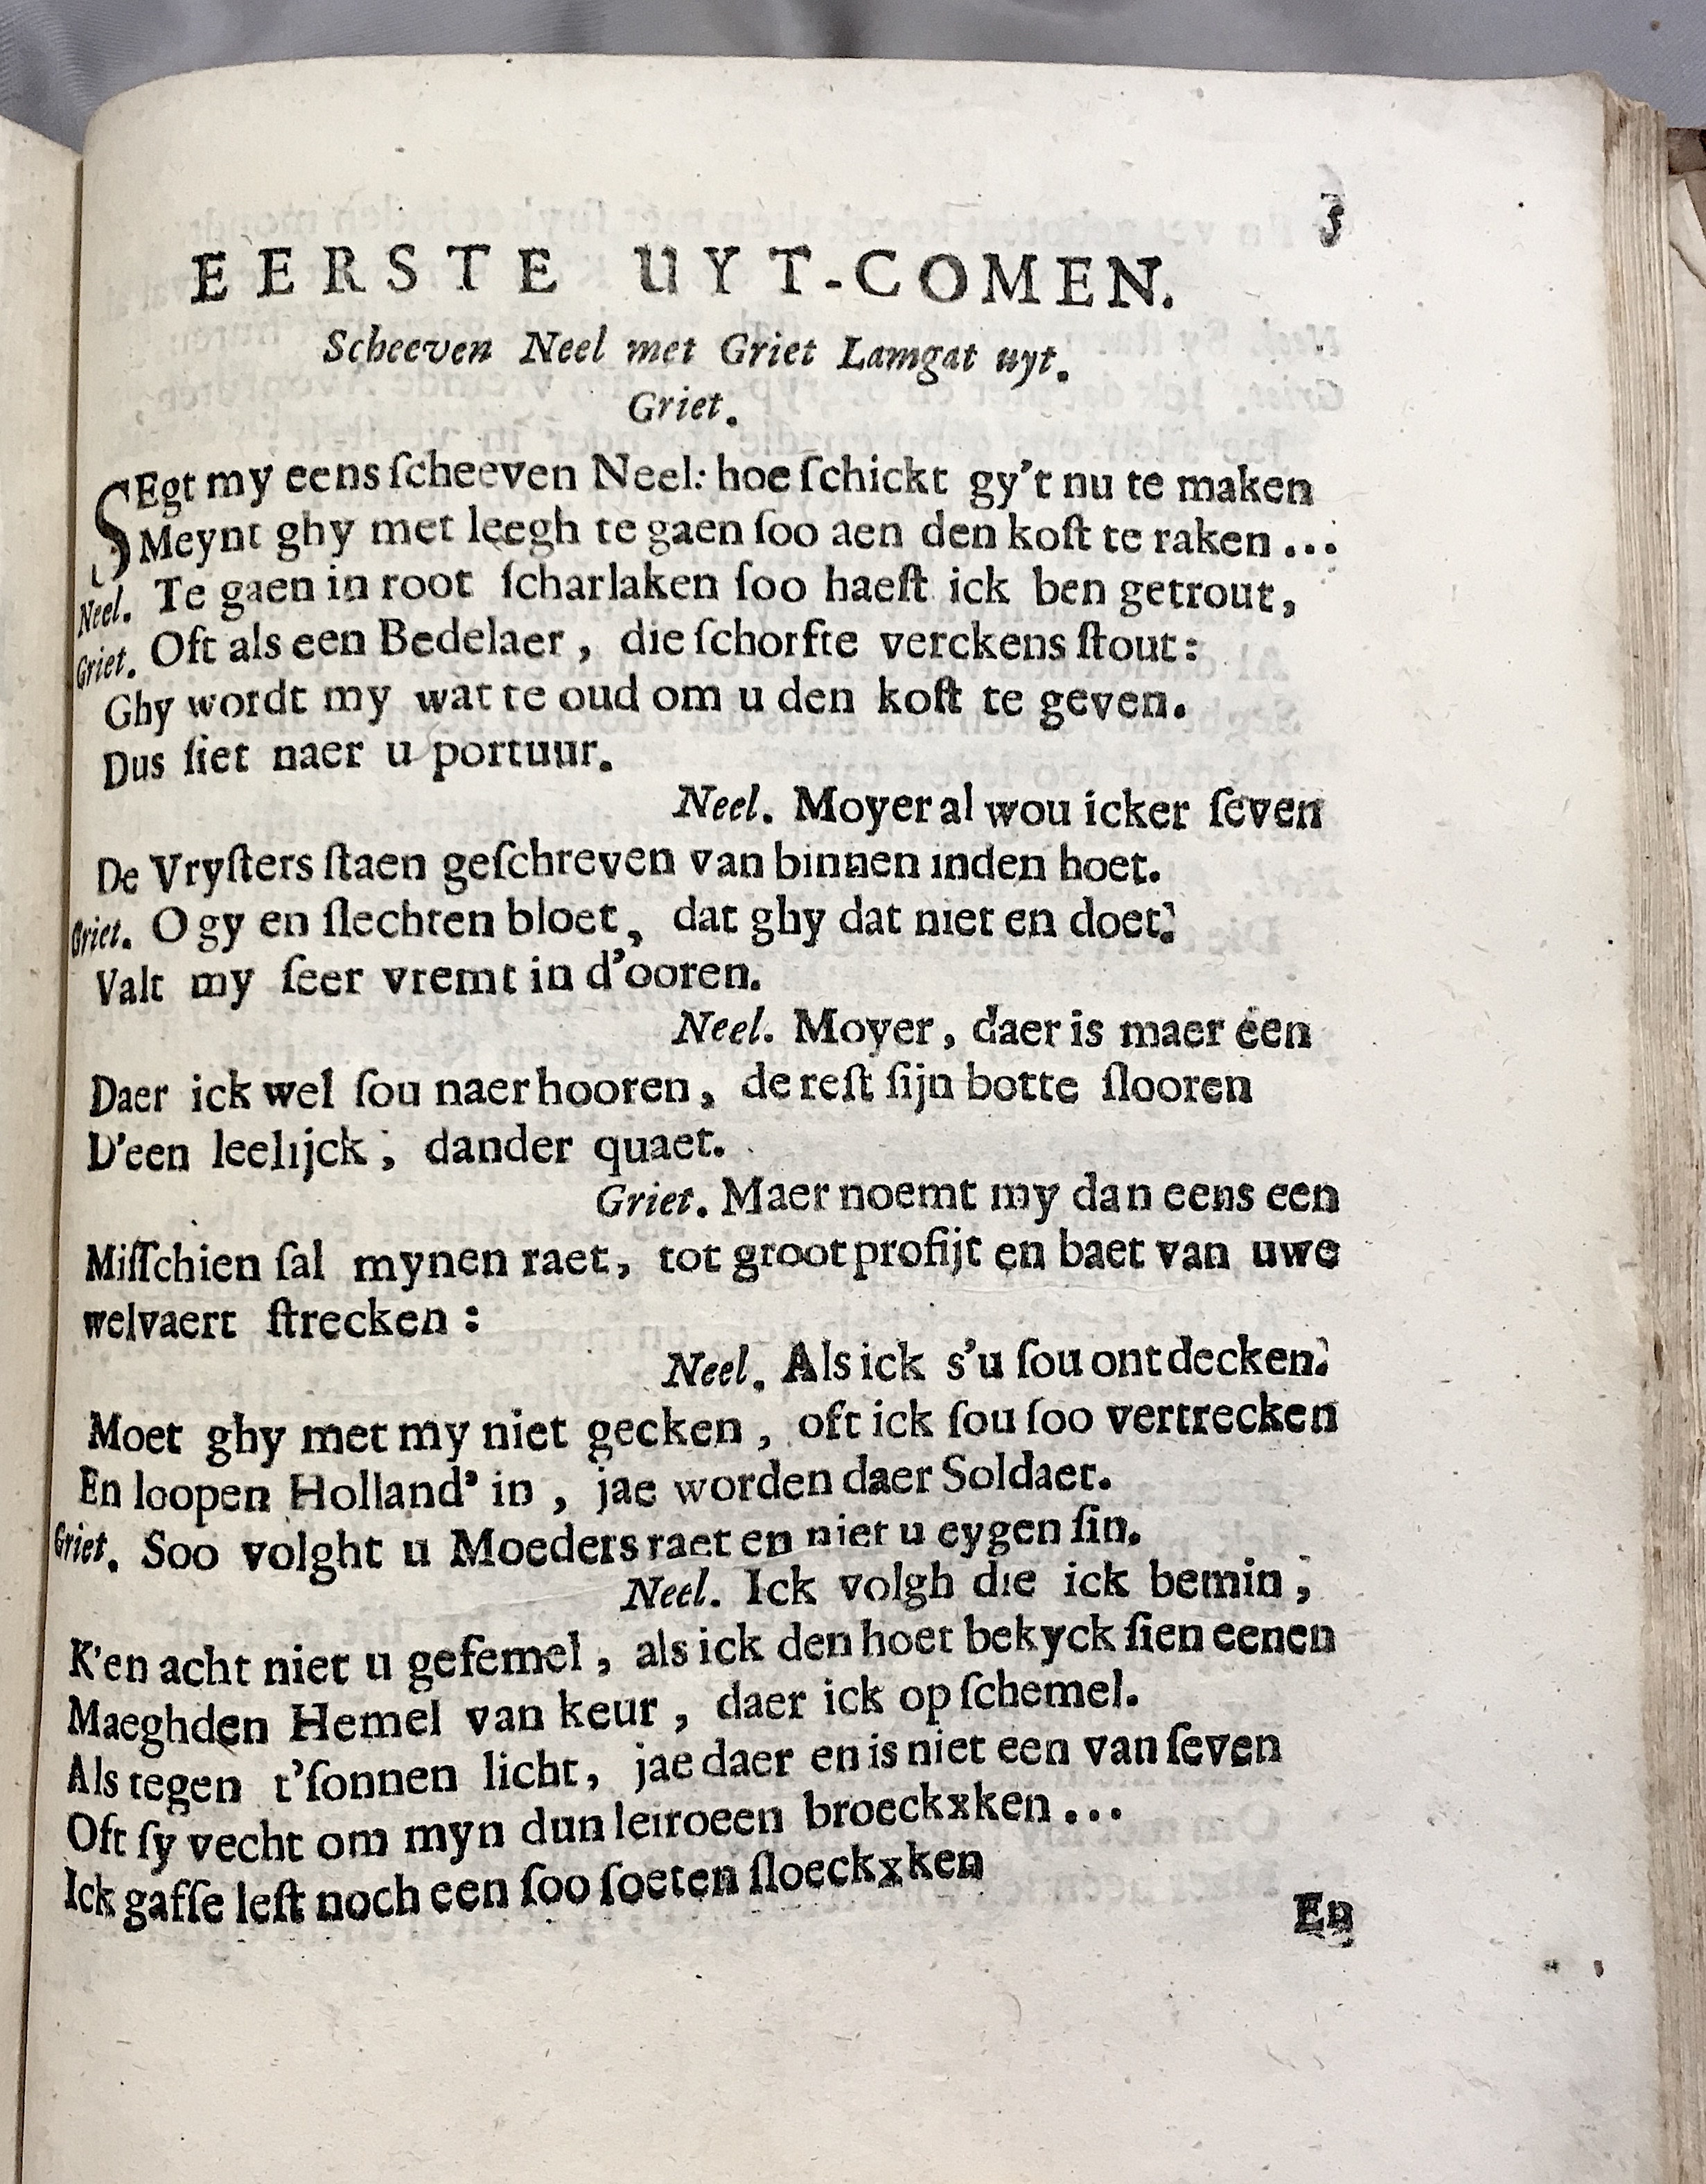 3
EERSTE UYT-COMEN.
Scheeven Neel met Griet Lamgat uyt.
Griet.
SEgt my eens ſcheeven Neel: hoe ſchickt gy't nu te maken
Meynt ghy met leegh te gaen ſoo aen den koſt te raken...
Neel. Te gaen in root ſcharlaken ſoo haeſt ick ben getrout,
Griet. Oft als een Bedelaer, die ſchorfte verckens ſtout:
Ghy wordt my wat te oud om u den koſt te geven.
Dus ſiet naer u portuur.
Neel. Moyer al wou icker ſeven
De Vryſters ſtaen geſchreven van binnen inden hoet.
Griet. O gy en ſlechten bloet, dat ghy dat niet en doet.
Valt my ſeer vremt in d'ooren.
Neel. Moyer, daer is maer éen
Daer ick wel ſou naer hooren, de reſt ſijn botte ſlooren
D'een leelijck, dander quaet.
Griet. Maer noemt my dan eens een
Miſſchien ſal mynen raet, tot groot profijt en baet van uwe
welvaert ſtrecken:
Neel. Als ick s'u ſou ontdecken.
Moet ghy met my niet gecken, oft ick ſou ſoo vertrecken
En loopen Holland' in, jae worden daer Soldaet.
Griet. Soo volght u Moeders raet en niet u eygen ſin.
Neel. Ick volgh die ick bemin;
K'en acht niet u gefemel, als ick den hoet bekyck ſien eenen
Maeghden Hemel van keur, daer ick op ſchemel.
Als tegen t'ſonnen licht, jae daer en is niet een van ſeven
Oft ſy vecht om myn dun leiroeen broeckxken...
Ick gaffe leſt noch een ſoo ſoeten ſloeckxken
En